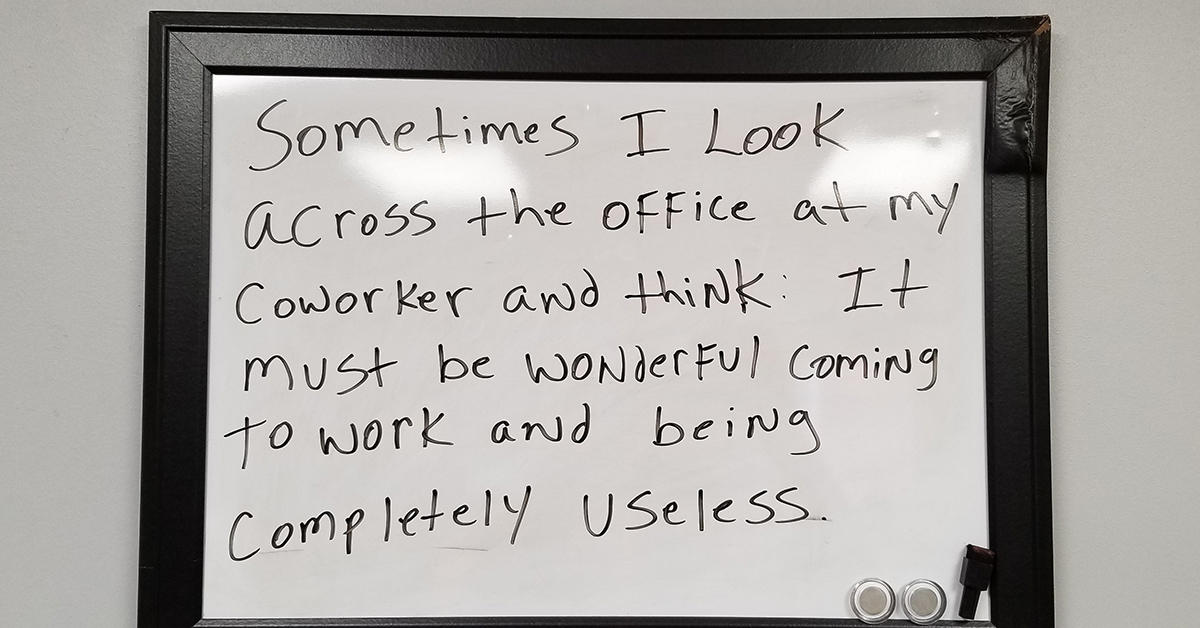 Sometimes I Look
across the office at my
coworker and think: It
must be wonderful coming
to work and being
completely useless.